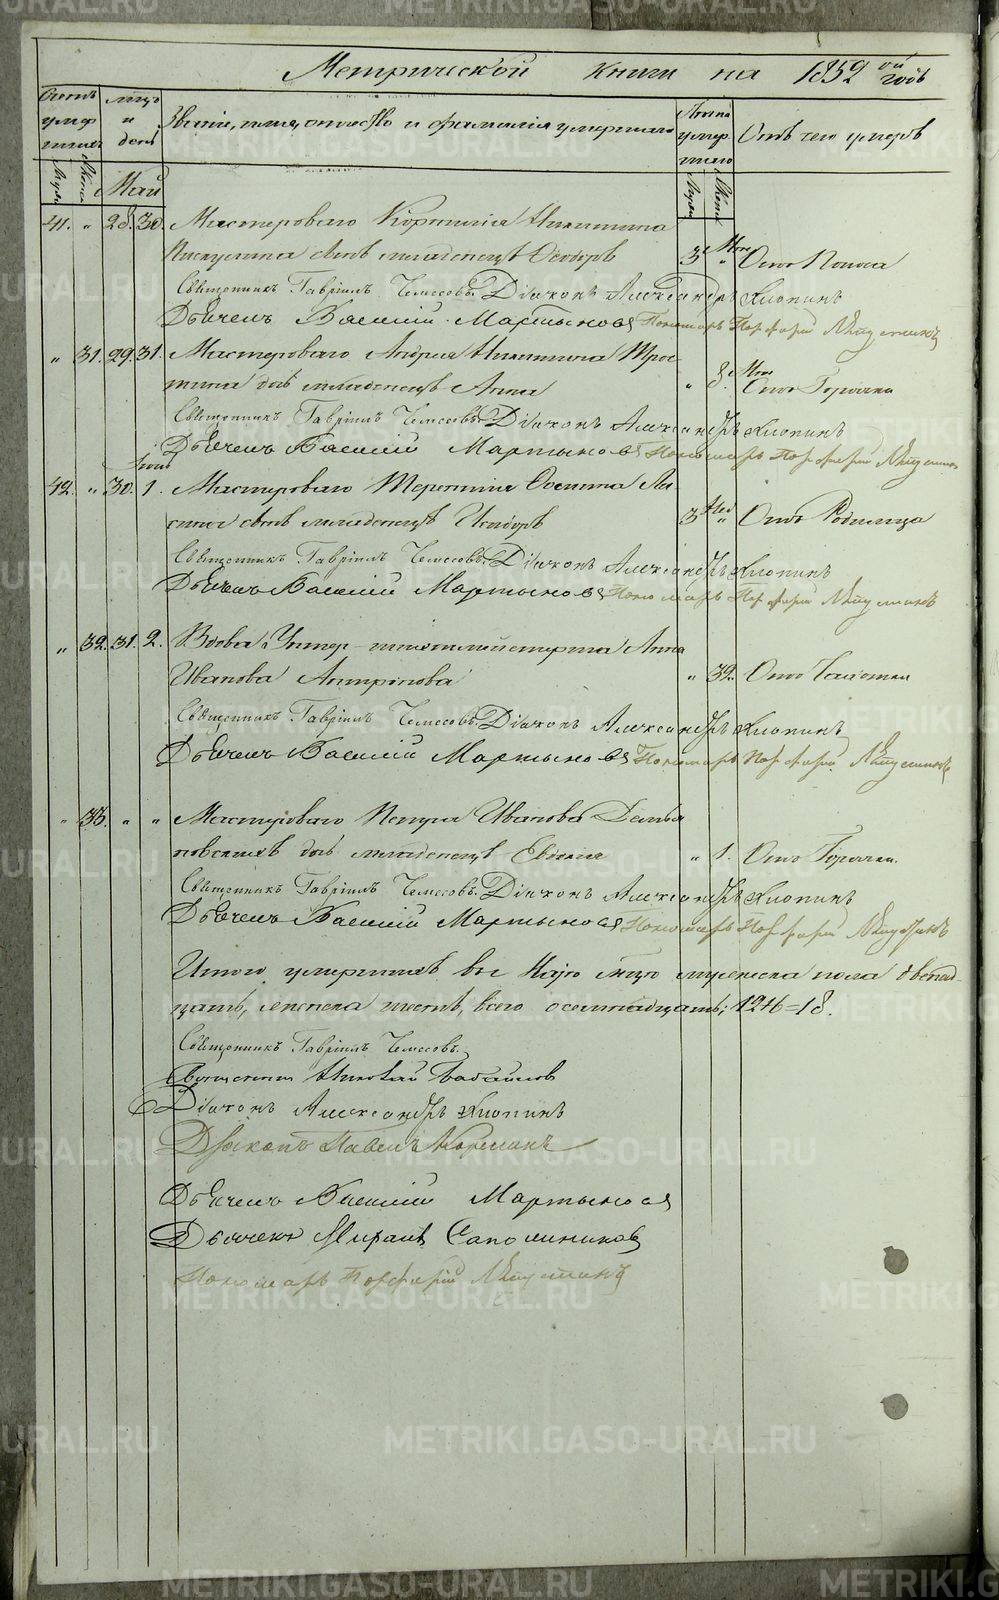 Метрической книги на 1852 ой годъ
Счетъ умер шихъ
Муж. Жен.
мцъ и день
Званіе, имя, отчество и фамилія умершаго
Лѣта умер шаго
Муж. Жен.
Отъ чего умеръ
Май
41. " 28. 30. Мастероваго Корнилія Никитина
сынъ младенецъ Ѳеодоръ 3. " Отъ Поноса
Священникъ Гавріилъ Чемесовъ. Діаконъ Александръ Хлопинъ
Дьячекъ Василій Мартыновъ Пономарь Порфирій
" 31. 29. 31. Мастероваго Андрея Никитина
дочь младенецъ Анна " 8. Отъ Горячки
Священникъ Гавріилъ Чемесовъ. Діаконъ Александръ Хлопинъ
Дьячекъ Василій Мартыновъ Пономарь Порфирій
Іюнь
42. " 30. 1. Мастероваго Терентія Осипова
сынъ младенецъ Исидоръ 3 " Отъ Родимца
Священникъ Гавріилъ Чемесовъ. Діаконъ Александръ Хлопинъ
Дьячекъ Василій Мартыновъ Пономарь Порфирій
" 32. 31. 2. Вдова Унтер-шихтмейстера Анна
Иванова Антропова " 39. Отъ Чахотки
Священникъ Гавріилъ Чемесовъ. Діаконъ Александръ Хлопинъ
Дьячекъ Василій Мартыновъ Пономарь Порфирій
" 33. " " Мастероваго Петра Иванова Демья
новскихъ дочь младенецъ Евдокія " 1. Отъ Горячки.
Священникъ Гавріилъ Чемесовъ. Діаконъ Александръ Хлопинъ
Дьячекъ Василій Мартыновъ Пономарь Порфирій
Итого умершихъ въ Маѣ мцѣ мужеска пола двенад-
цать, женска шесть, всего осемнадцать; 12+6=18.
Священникъ Гавріилъ Чемесовъ.
Священник Николай
Діаконъ Александръ Хлопинъ
Діаконъ Павелъ
Дьячекъ Василій Мартыновъ
Дьячекъ Михаилъ Сапожниковъ
Пономарь Порфирій
METRIKI.GASO-URAL.RU